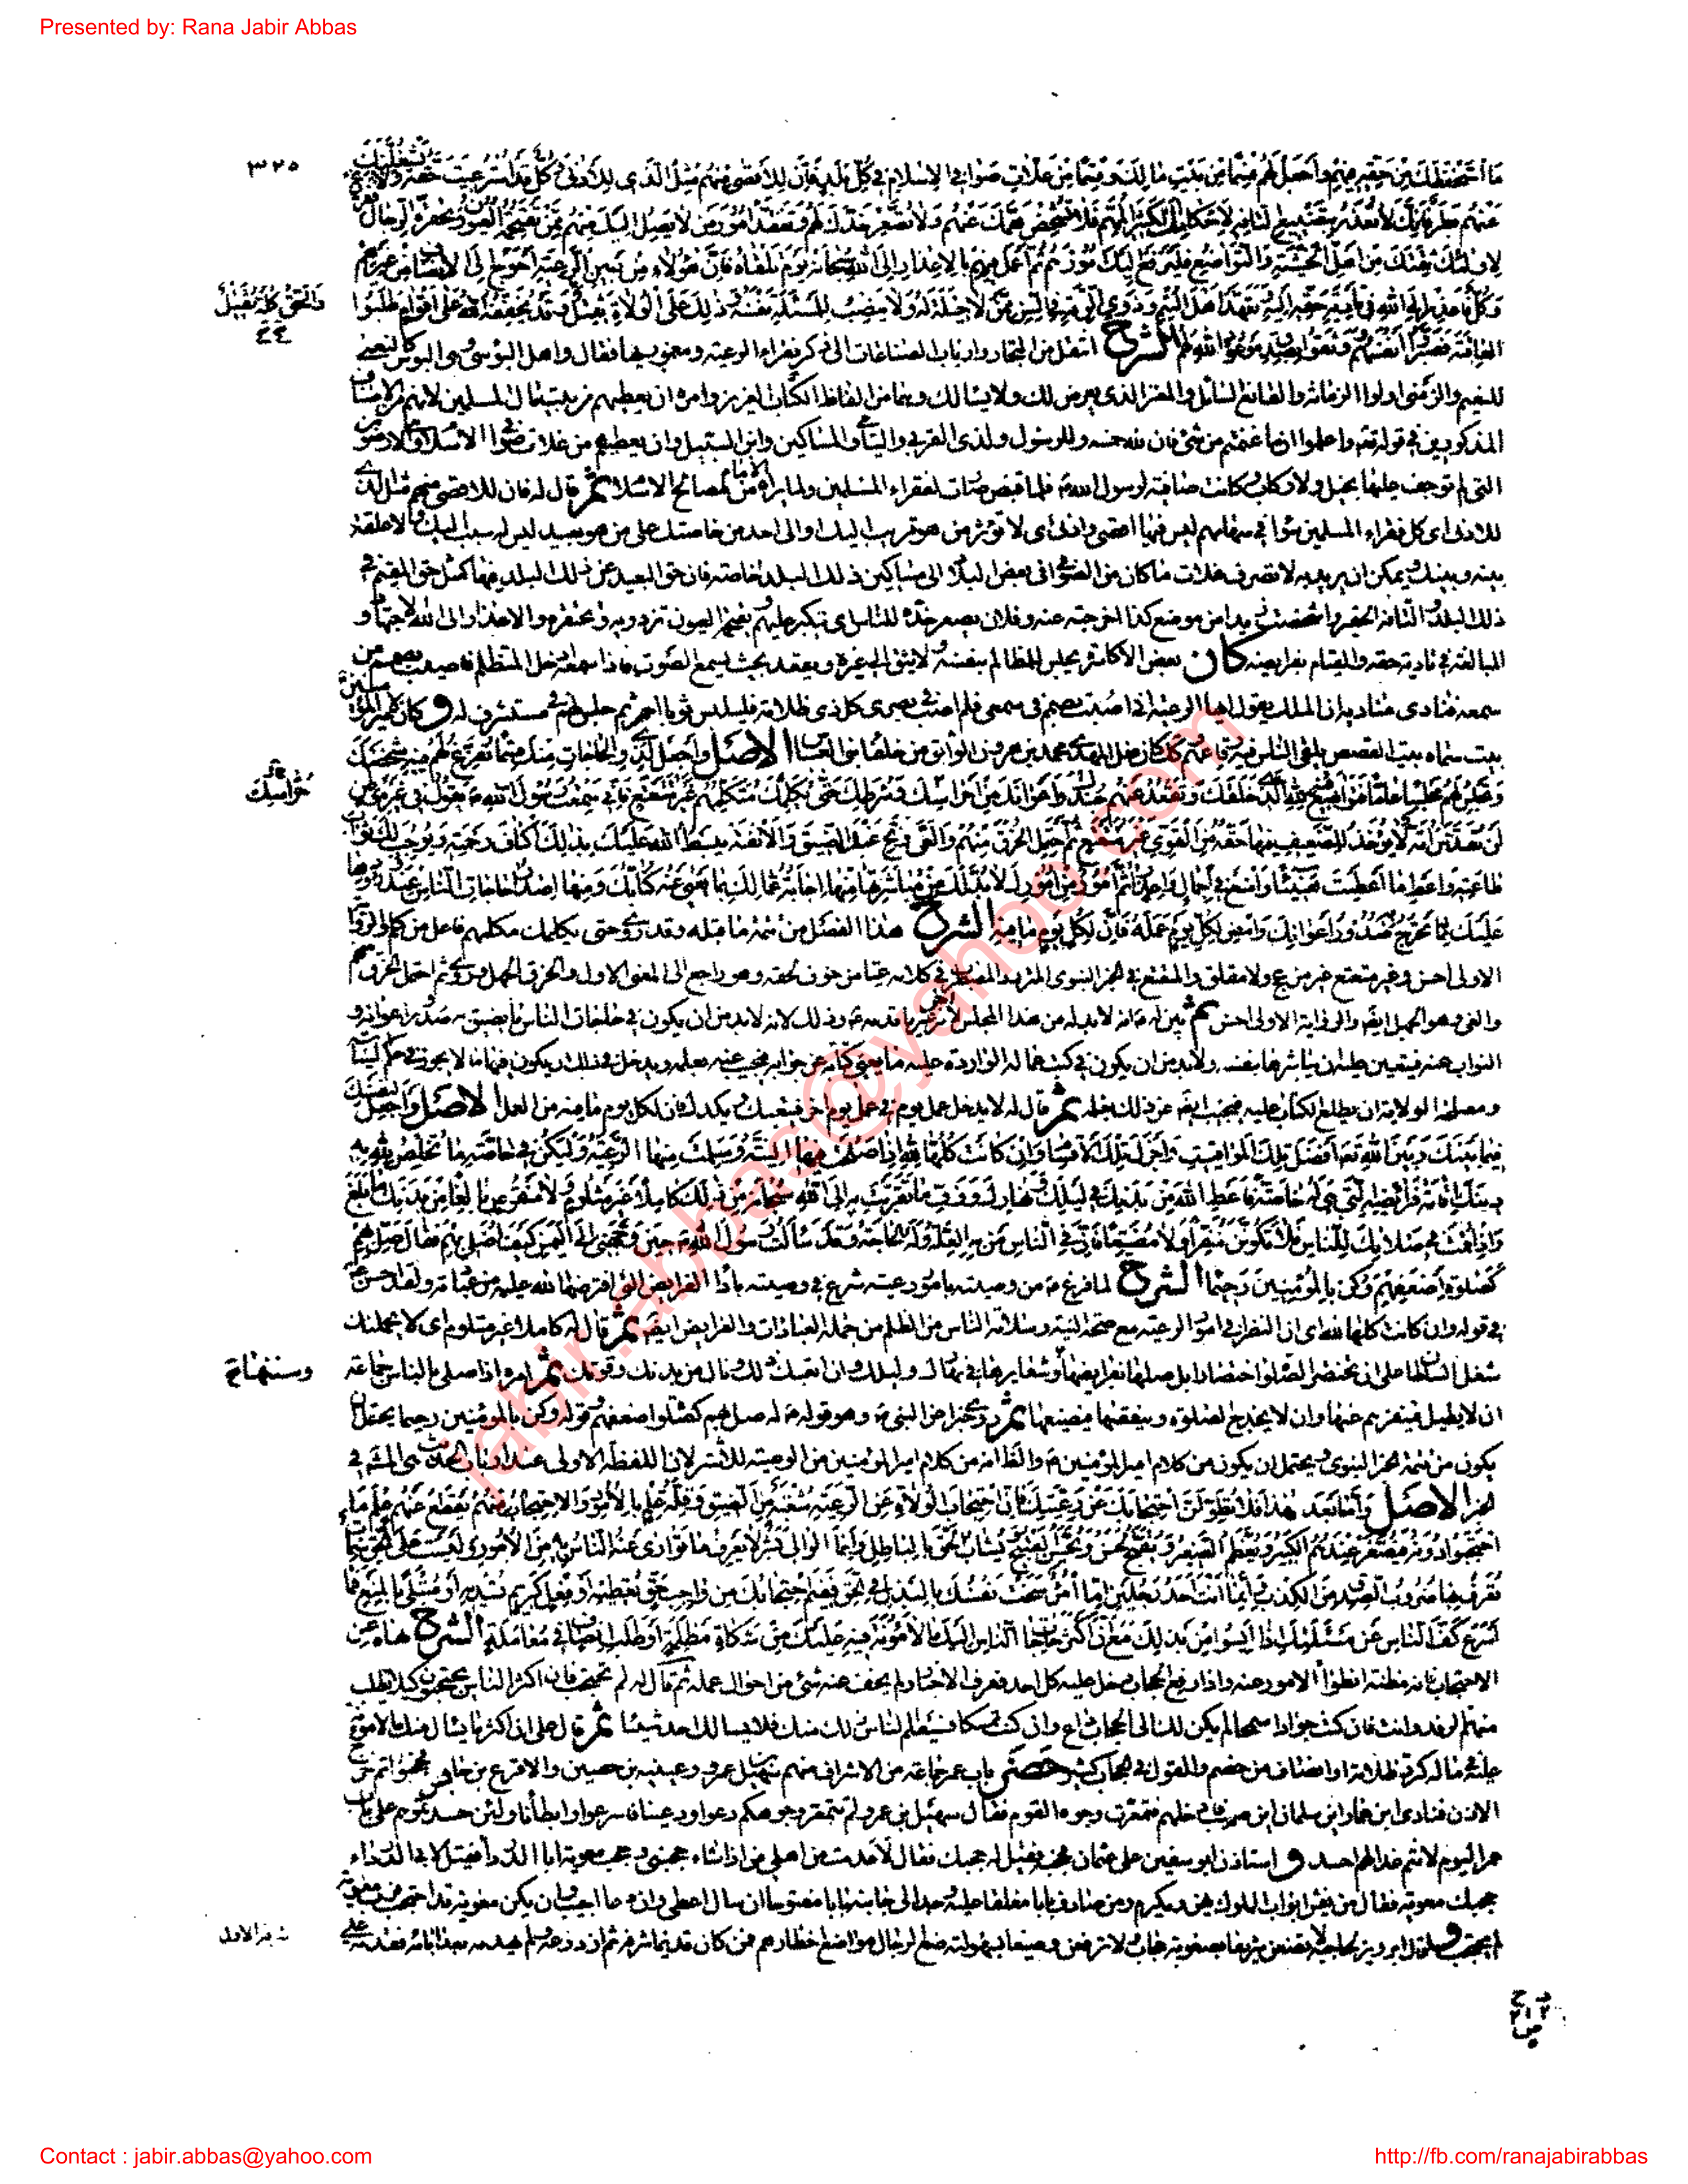 Presented by: Rana Jabir Abbas
٣٢٥
ما استحفظك من حقه فيهم واجعل لهم قسما من بيت مالك وقسما من غلات صوافي الاسلام في كل بلد فان للاقصى منهم مثل الذي للادنى وكل قد استرعيت حقه ولا يشغلنك
عنهم بطر فانك لا تعذر بتضييع التافه لاحكامك الكثير المهم فلا تشخص همك عنهم ولا تصعر خدك لهم وتفقد امور من لا يصل اليك منهم ممن تقتحمه العيون وتحقره الرجال ففرغ
لاولئك ثقتك من اهل الخشية والتواضع فليرفع اليك امورهم ثم اعمل فيهم بالاعذار الى الله سبحانه يوم تلقاه فان هؤلاء من بين الرعية احوج الى الانصاف من غيرهم
وكل فاعذر الى الله في تادية حقه اليه وتعهد اهل اليتم وذوي الرقة في السن ممن لا حيلة له ولا ينصب للمسئلة نفسه وذلك على الولاة ثقيل وقد يخففه الله على اقوام طلبوا
والحق كله ثقيل
العاقبة فصبروا انفسهم ووثقوا بصدق موعود الله لهم الشرح انتقل من التجار وارباب الصناعات الى ذكر فقراء الرعية ومغموريها فقال واهل البؤسى وهي البؤس كالنعمى
للنعيم والزمنى اولوا الزمانة والقانع السائل والمعتر الذي يعرض لك ولا يسألك وهما من الفاظ الكتاب العزيز وامره ان يعطيهم من بيت مال المسلمين لانهم من الاصناف
المذكورين في قوله تعالى واعلموا انما غنمتم من شئ فان لله خمسه وللرسول ولذي القربى واليتامى والمساكين وابن السبيل وان يعطيهم من غلات صوافي الاسلام وهي الارضون
التي لم يوجف عليها بخيل ولا ركاب وكانت صافية لرسول الله فلما قبض صارت لفقراء المسلمين ولما يراه الامام من مصالح الاسلام ثم قال له فان للاقصى منهم مثل الذي
للادنى اى كل فقراء المسلمين سواء في سهامهم ليس فيها اقصى وادنى اى لا تؤثر من هو قريب اليك او الى احد من خاصتك على من هو بعيد ليس له سبب اليك ولا علقة
بينه وبينك ويمكن ان يريد به لا تصرف غلات ما كان من الصوافي في بعض البلاد الى مساكين ذلك البلد خاصة فان حق البعيد عن ذلك البلد فيها كمثل حق المقيم في
ذلك البلد والتافه الحقير واشخصت زيدا من موضع كذا اخرجته عنه وفلان يصعر خده للناس اى يتكبر عليهم وتقتحمه العيون تزدريه وتحتقره والاعذار الى الله الاجتهاد و
المبالغة في تادية حقه والقيام بفرايضه كان بعض الاكاسرة يجلس للمظالم بنفسه ولا يثق الى غيره ويقعد بحيث يسمع الصوت فاذا سمعه ادخل المتظلم فاصيب بصمم في
سمعه فنادى مناديه ان الملك يقول ايها الرعية اني ان اصبت بصمم في سمعي فلم اصب في بصري كل ذي ظلامة فليلبس ثوبا احمر ثم جلس لهم في مستشرف له وكان لامير المؤمنين
بيت سماه بيت القصص يلقي الناس فيه رقاعهم وكذلك كان فعل المهدي محمد بن هرون الواثق من خلفاء بني العباس الاصل واجعل لذوي الحاجات منك قسما تفرغ لهم فيه شخصك
وتجلس لهم مجلسا عاما فتتواضع فيه لله الذي خلقك وتقعد عنهم جندك واعوانك من احراسك وشرطك حتى يكلمك متكلمهم غير متعتع فاني سمعت رسول الله يقول في غير موطن
لن تقدس امة لا يؤخذ للضعيف فيها حقه من القوي غير متعتع ثم احتمل الخرق منهم والعي ونح عنك الضيق والانف يبسط الله عليك بذلك اكناف رحمته ويوجب لك ثواب
طاعته واعط ما اعطيت هنيئا وامنع في اجمال واعذار ثم امور من امورك لا بد لك من مباشرتها منها اجابة عمالك بما يعيى عنه كتابك ومنها اصدار حاجات الناس عند ورودها
عليك مما تحرج به صدور اعوانك وامض لكل يوم عمله فان لكل يوم ما فيه الشرح هذا الفصل من تتمة ما قبله وقد روي حتى يكلمك مكلمهم فاعل من كلم والرواية
الاولى احسن وغير متعتع غير مزعج ولا مقلق والمتعتع في الخبر النبوي المتردد المضطرب في كلامه عيا من خوف لحقه وهو راجع الى المعنى الاول والخرق الجهل وروي ثم احتمل الخرق منهم
والغي وهو الجهل ايضا والرواية الاولى احسن ثم بين له انه لا بد له من هذا المجلس
النواب عنه فيتعين عليه ان يباشرها بنفسه ولا بد من ان يكون في كتب عماله الواردة عليه ما يعيى كتابه عن جوابه فيجيب عنه بعلمه ويدخل في ذلك ان يكون فيها ما لا يجوز في حكم السياسة
ومصلحة الولاية ان يطلع الكتاب عليه فيجيب ايضا عن ذلك بعلمه ثم قال له لا تدخل عمل يوم في عمل يوم اخر فيتعبك ويكدرك فان لكل يوم ما فيه من العمل الاصل واجعل لنفسك
فيما بينك وبين الله تعالى افضل تلك المواقيت واجزل تلك الاقسام وان كانت كلها لله اذا صلحت فيها النية وسلمت منها الرعية وليكن في خاصة ما تخلص لله به
دينك اقامة فرائضه التي هي له خاصة فاعط الله من بدنك في ليلك ونهارك ووف ما تقربت به الى الله سبحانه من ذلك كاملا غير مثلوم ولا منقوص بالغا من بدنك ما بلغ
واذا قمت في صلاتك للناس فلا تكونن منفرا ولا مضيعا فان في الناس من به العلة وله الحاجة وقد سألت رسول الله حين وجهني الى اليمن كيف اصلي بهم فقال صل بهم
كصلوة اضعفهم وكن بالمؤمنين رحيما الشرح لما فرغ من وصيته بامور رعيته شرع في وصيته باداء الفرايض التي افترضها الله عليه من عبادته ولقد احسن
في قوله وان كانت كلها لله اى ان النظر في امور الرعية مع صحة النية وسلامة الناس من الظلم من جملة العبادات والفرايض ايضا ثم قال له كاملا غير مثلوم اى لا يحملنك
شغل السلطان على ان تختصر الصلوة اختصارا بل صلها بفرايضها وشعايرها في نهارك وليلك وان اتعبك ذلك ونال من بدنك وقوتك ثم امره اذا صلى بالناس جماعة
وسننها
ان لا يطيل فينفرهم عنها وان لا يخدج الصلوة وينقصها فيضيعها ثم روى خبرا عن النبي وهو قوله له صل بهم كصلوة اضعفهم وقوله وكن بالمؤمنين رحيما يحتمل ان
يكون من تتمة الخبر النبوي ويحتمل ان يكون من كلام امير المؤمنين والظاهر انه من كلام امير المؤمنين من الوصية للاشتر لان اللفظة الاولى عند ارباب الحديث هي المشهور في
الخبر الاصل واما بعد هذا فلا تطولن احتجابك عن رعيتك فان احتجاب الولاة عن الرعية شعبة من الضيق وقلة علم بالامور والاحتجاب منهم يقطع عنهم علم ما
احتجبوا دونه فيصغر عندهم الكبير ويعظم الصغير ويقبح الحسن ويحسن القبيح ويشاب الحق بالباطل وانما الوالي بشر لا يعرف ما توارى عنه الناس به من الامور وليست على الحق سمات
تعرف بها ضروب الصدق من الكذب وانما انت احد رجلين اما امرؤ سخت نفسك بالبذل في الحق ففيم احتجابك من واجب حق تعطيه او فعل كريم تسديه او مبتلى بالمنع فما
اسرع كف الناس عن مسئلتك اذا ايسوا من بذلك مع ان اكثر حاجات الناس اليك ما لا مؤنة فيه عليك من شكاة مظلمة او طلب انصاف في معاملة الشرح نهاه عن
الاحتجاب فانه مظنة انطواء الامور عنه واذا رفع الحجاب دخل عليه كل احد فعرف الاخبار ولم يخف عنه شئ من احوال عمله ثم قال له لم تحتجب فان اكثر الناس يحتجبون كيلا يطلب
منهم الرفد وانت فان كنت جوادا سمحا لم يكن لك الى الحجاب داع وان كنت ممسكا فسيعلم الناس ذلك منك فلا يسالك احد شيئا ثم قال على ان اكثر ما يسال منك ما لا مؤنة
عليك في ماله كرد ظلامة او انصاف من خصم والقول في الحجاب كثير حضر باب عمر جماعة من الاشراف منهم سهيل بن عمرو وعيينة بن حصين والاقرع بن حابس فحجبوا ثم خرج
الاذن فنادى اين عمار اين سلمان اين صهيب فادخلهم فتمعرت وجوه القوم فقال سهيل بن عمرو لم تتمعر وجوهكم دعوا ودعينا فاسرعوا وابطأنا ولئن حسدتموهم على باب
عمر اليوم لانتم غدا لهم احسد و استاذن ابو سفين على عثمان فحجبه فقيل له حجبك فقال لا عدمت من اهلي من اذا شاء حجبني وحجب معوية ابا الدرداء فقيل لابي الدرداء
حجبك معوية فقال من يغش ابواب الملوك يهن ويكرم ومن صادف بابا مغلقا عليه وجد الى جانبه بابا مفتوحا ان سال اعطي وان دعا اجيب وان يكن معوية قد احتجب فرب معوية
لم يحتجب و قال ابرويز لحاجبه لا تضعن شريفا بصعوبة حجاب ولا ترفعن وضيعا بسهولته ضع الرجال مواضع اخطارهم فمن كان قديما شرفه ثم ازدرعه ولم يهدمه بعد ابائه فقدمه على
شرفه الاول
jabir.abbas@yahoo.com
Contact : jabir.abbas@yahoo.com
http://fb.com/ranajabirabbas